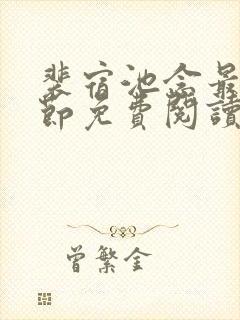 裴宿池念最
節免費閱讀
曾繁全